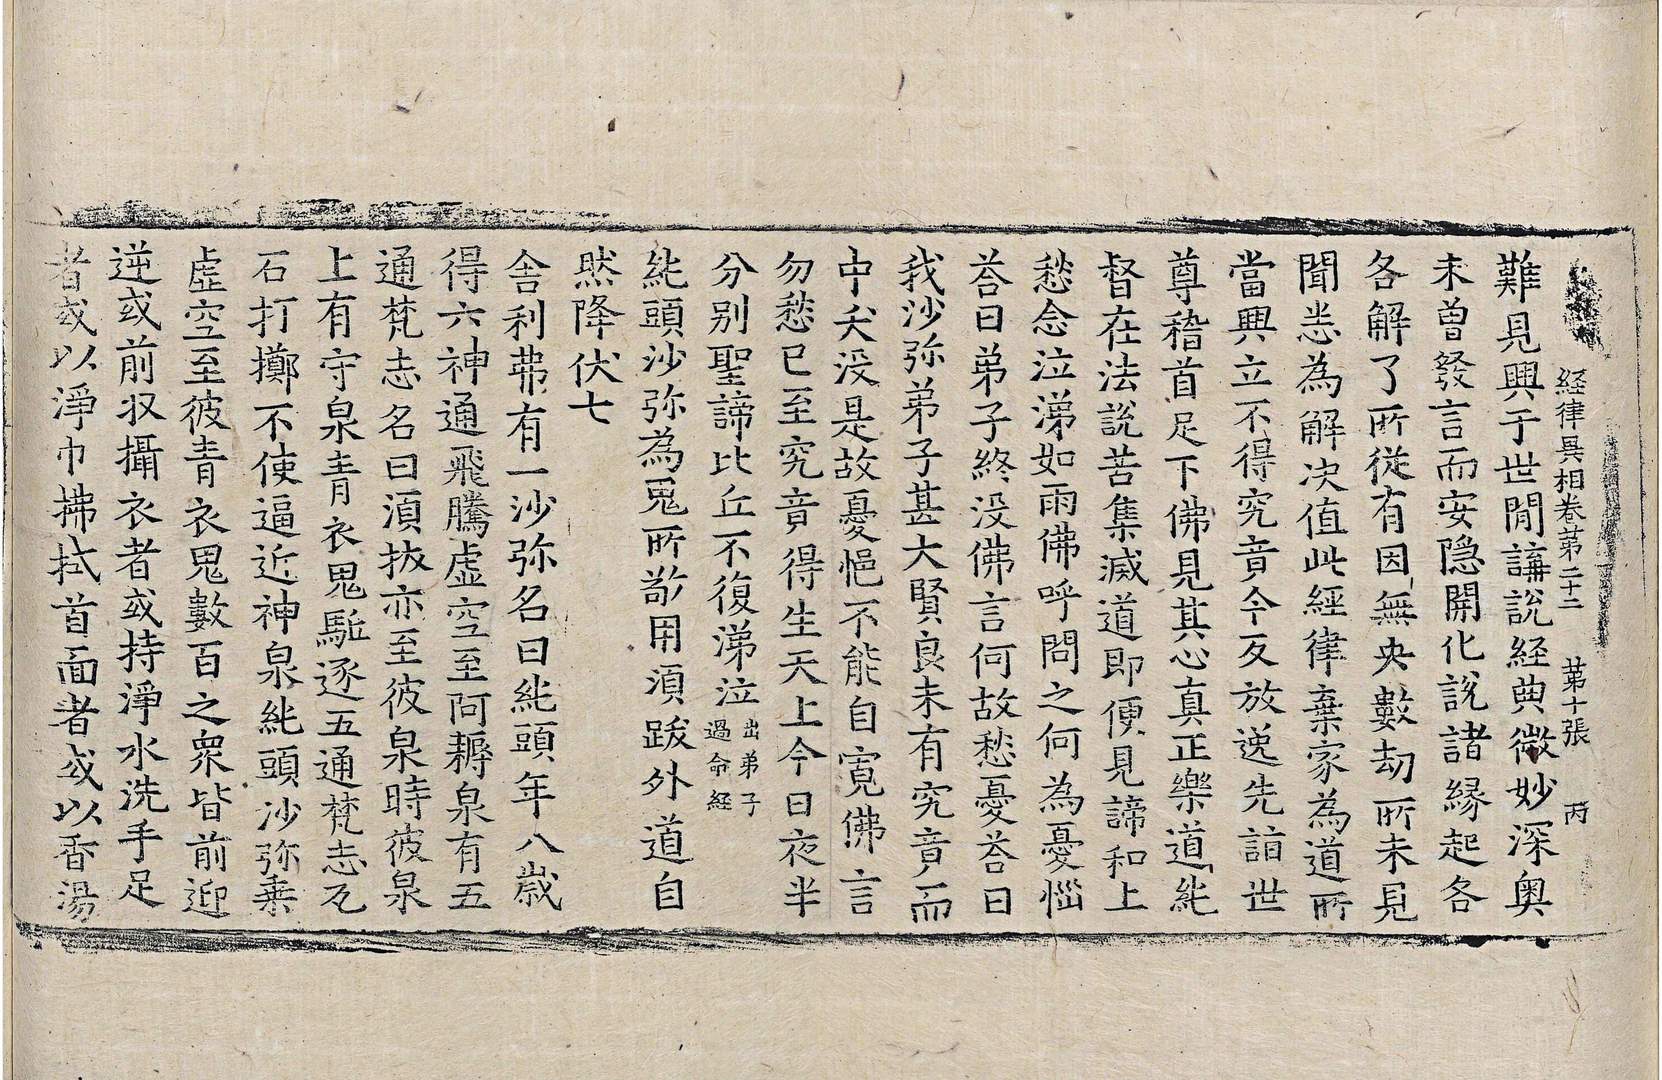 経律異相卷第二十二 第十張 丙
難見興于世閒講說経典微妙深奥
未曽發言而安隐開化說諸縁起各
各解了所從有因無央數劫所未見
聞悉為解决值此經律棄家為道所
當興立不得究竟今反放逸先詣世
尊稽首足下佛見其心真正樂道純
督在法說苦集滅道即便見諦和上
愁念泣涕如雨佛呼問之何為憂惱
荅曰弟子終没佛言何故愁憂荅曰
我沙弥弟子甚大賢良未有究竟而
中夭没是故憂悒不能自寛佛言
勿愁已至究竟得生天上今日夜半
分别聖諦比丘不復涕泣出弟子過命経
純頭沙弥為鬼所敬用湏跋外道自
然降伏七
舎利弗有一沙弥名曰純頭年八歳
得六神通飛騰虚空至阿耨泉有五
通梵志名曰湏抜亦至彼泉時彼泉
上有守泉青衣鬼駈逐五通梵志瓦
石打擲不使逼近神泉純頭沙弥乗
虚空至彼青衣鬼數百之衆皆前迎
逆或前収攝衣者或持淨水洗手足
者或以淨巾拂拭首面者或以香湯